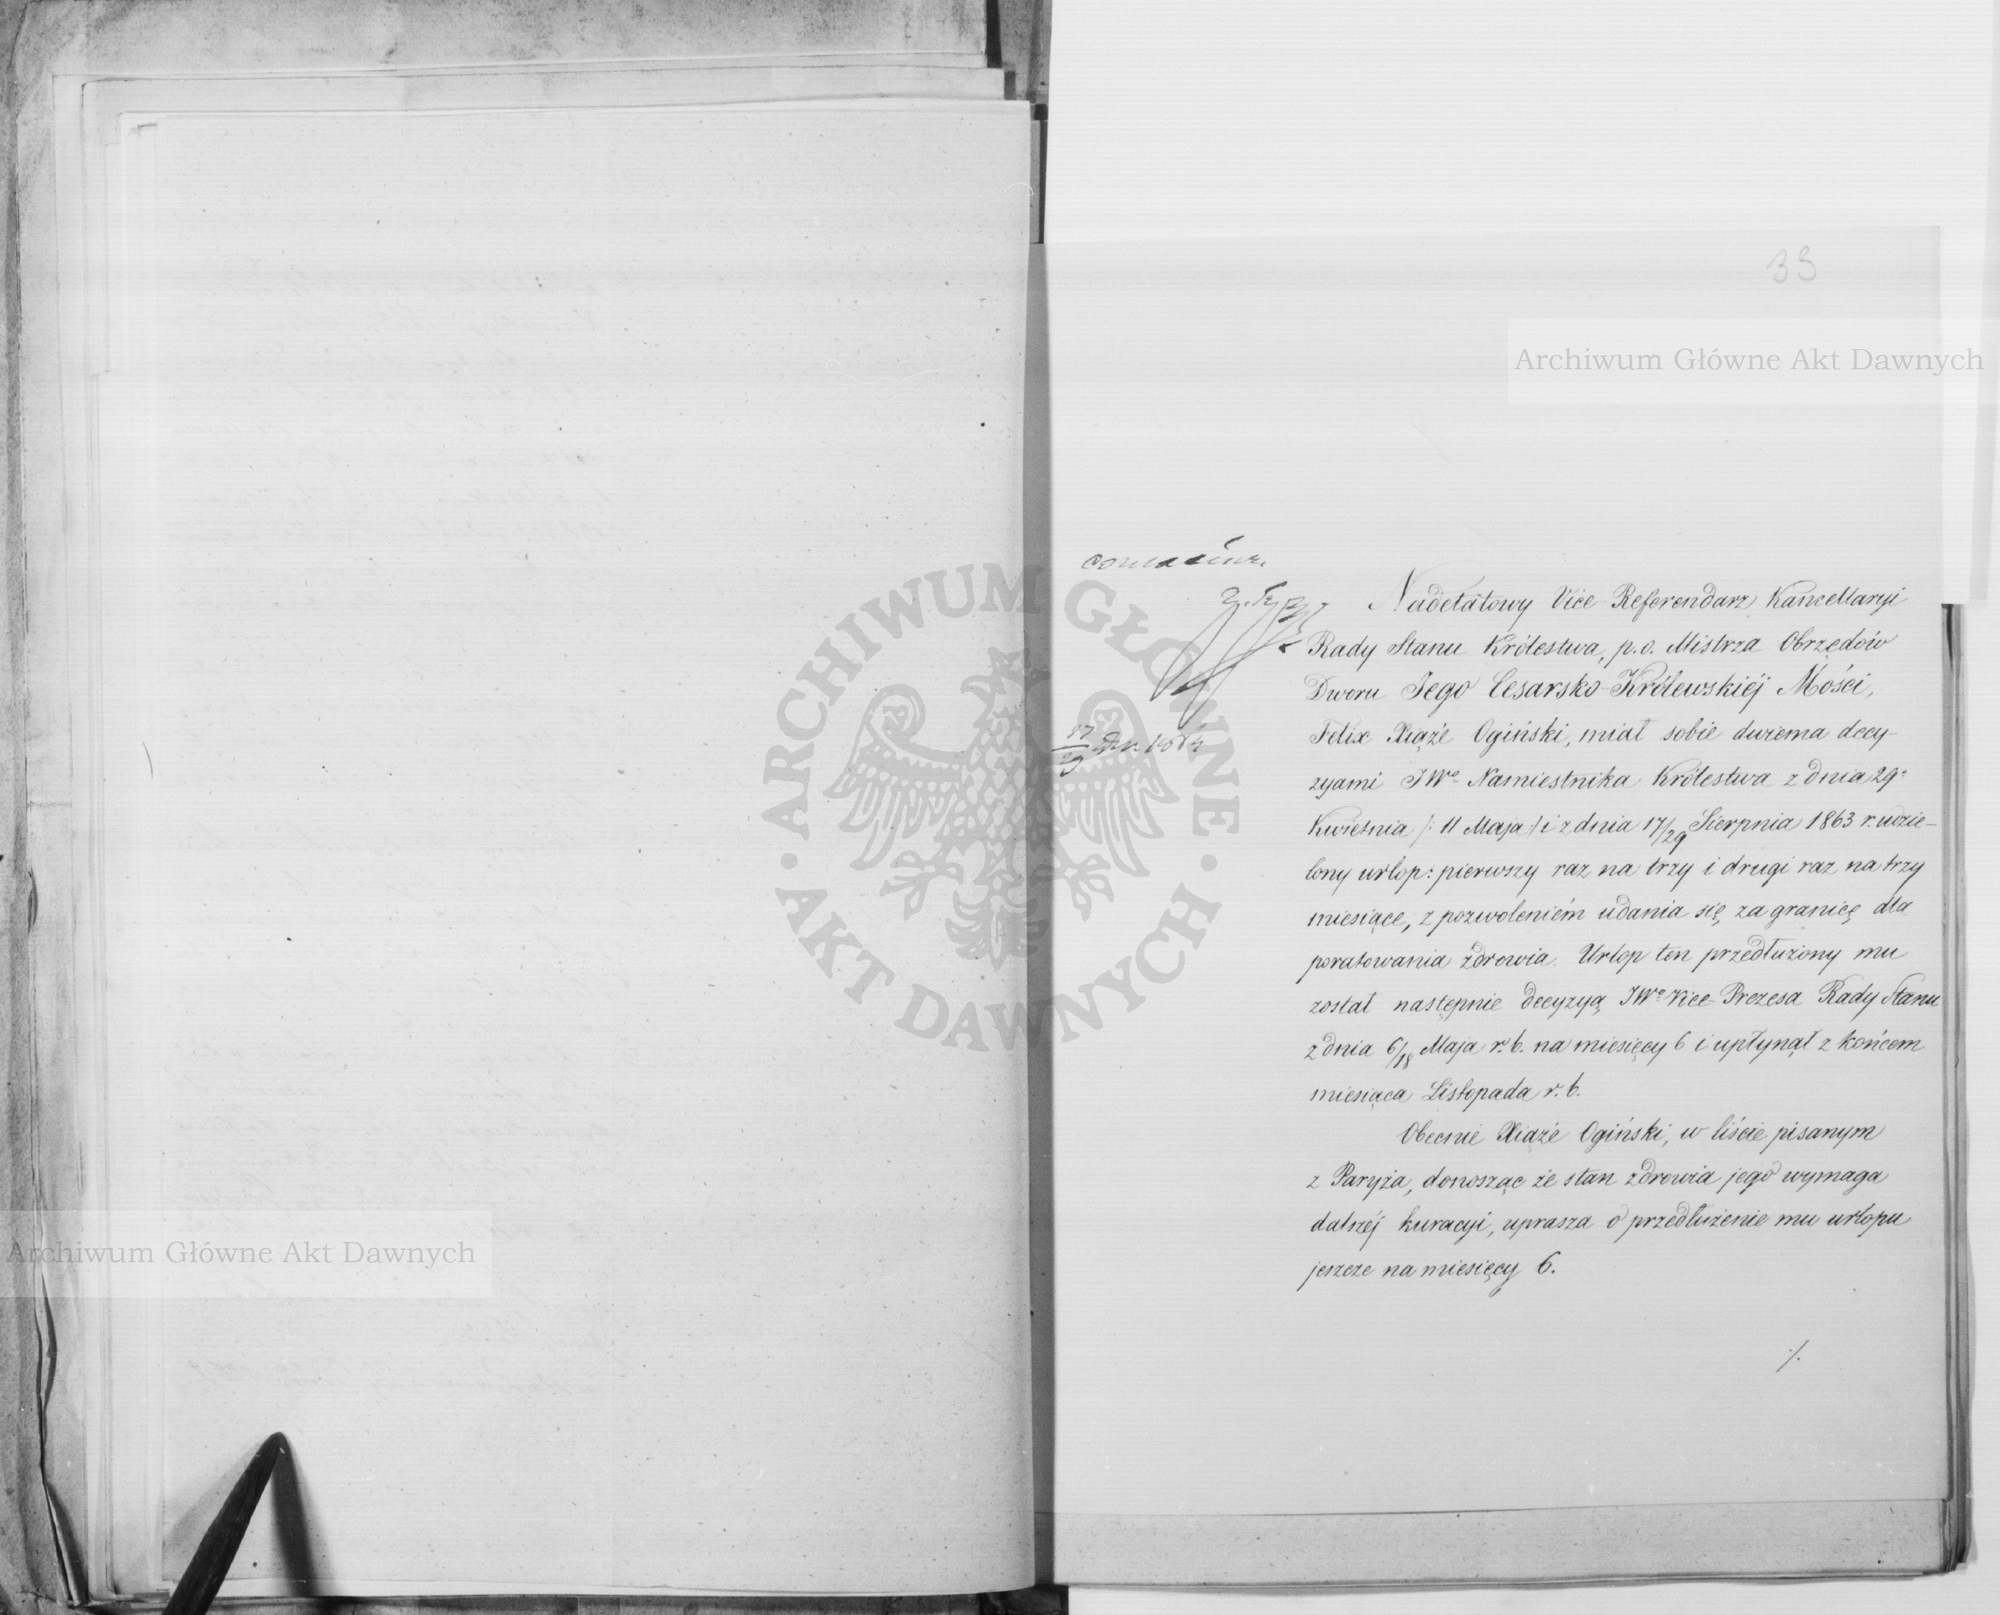 33
Archiwum Główne Akt Dawnych
Nadetatowy Vice-Referendarz Kancellaryi
Rady Stanu Królestwa, p.o. Mistrza Obrzędów
Dworu Jego Cesarsko-Królewskiéj Mości,
Felix Xiąże Ogiński, miał sobie dwiema decy-
zyami JWo Namiestnika Królestwa z dnia 29o
Kwietnia /: 11 Maja :/ i z dnia 17/29 Sierpnia 1863 r. udzie-
lony urlop: pierwszy raz na trzy i drugi raz na trzy
miesiące, z pozwoleniém udania się za granicę dla
poratowania zdrowia. Urlop ten przedłużony mu
został następnie decyzyą JWo Vice-Prezesa Rady Stanu
z dnia 6/18 Maja r. b. na miesięcy 6 i upłynął z końcem
miesiąca Listopada r. b.
Obecnie Xiąże Ogiński, w liście pisanym
z Paryża, donosząc że stan zdrowia jego wymaga
dalszéj kuracyi, uprasza o przedłużenie mu urlopu
jeszcze na miesięcy 6.
./.
ARCHIWUM GŁÓWNE
AKT DAWNYCH
Archiwum Główne Akt Dawnych